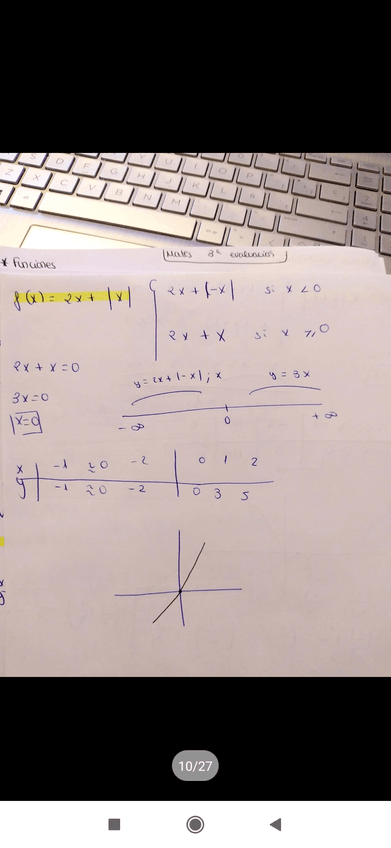 Mates 3ª evaluación
* Funciones
f(x) = 2x + |x| { 2x + |-x| si x < 0
2x + x si x ≥ 0
2x + x = 0
3x = 0
x = 0
y = 2x + |-x| ; x y = 3x
-∞ 0 +∞
x -1 ≈0 -2 0 1 2
y -1 ≈0 -2 0 3 5
10/27